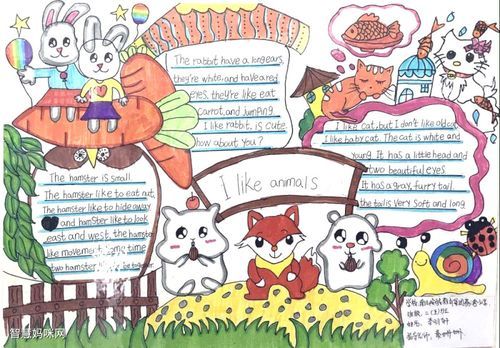 The rabbit have a long ears,
they're white, and have a red
eyes, they're like eat
carrot, and jumping.
I like rabbit, is cute
how about you?
I like animals
The hamster is small
The hamster like to eat nut,
The hamster like to hide away
and hamster like to look
east and west, the hamster
like movement, some time
two hamster
I like cat, but I don't like old cat
I like baby cat. The cat is white and
young. It has a little head and
two beautiful eyes.
It has a gray, furry tail
the tail is very soft and long
智慧妈咪网